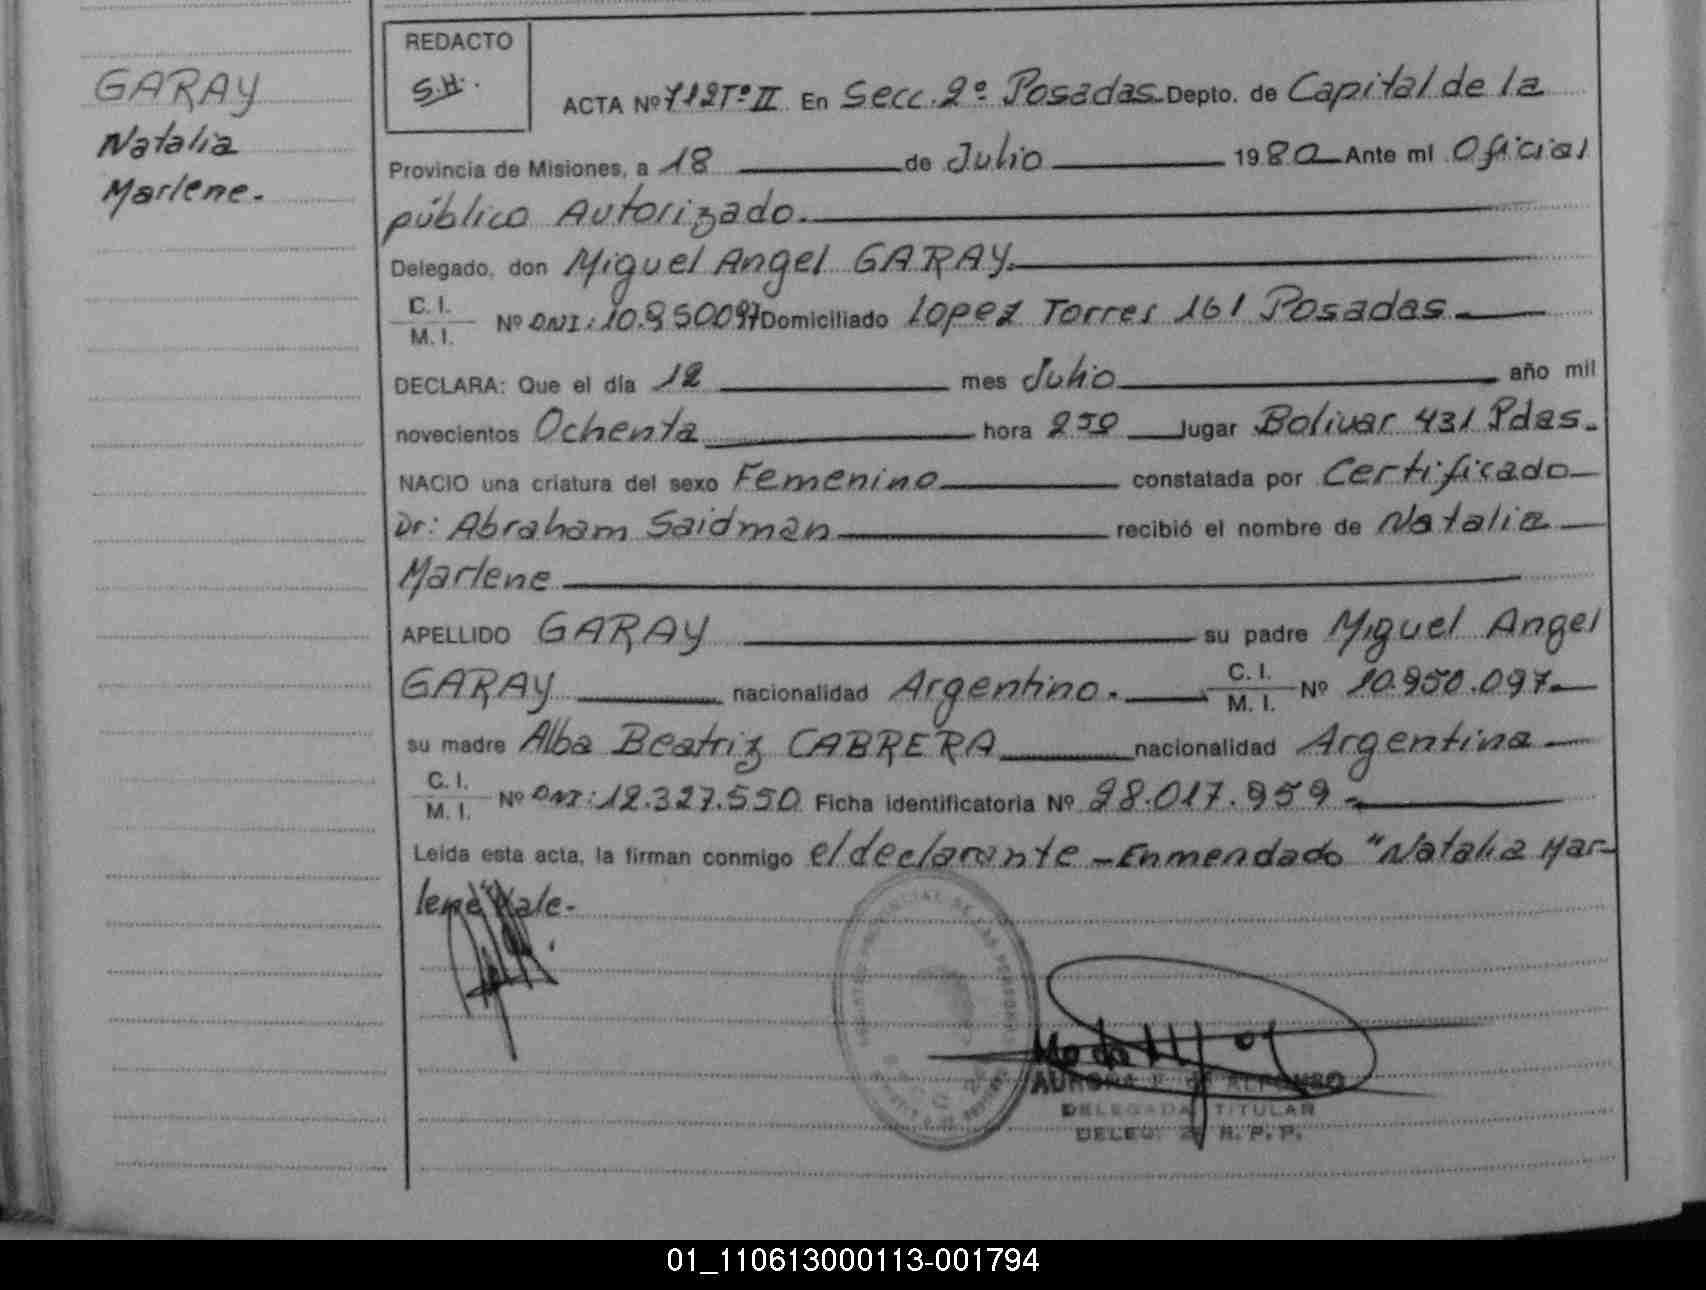 GARAY
Natalia
Marlene.
REDACTO
S.H.
ACTA Nº 112 Tº II En Secc. 2º Posadas Depto. de Capital de la
Provincia de Misiones, a 18 de Julio 1980 Ante mi Oficial
público Autorizado.
Delegado, don Miguel Angel GARAY.
C. I.
M. I. Nº DNI: 10.950097 Domiciliado lopez Torres 161 Posadas.
DECLARA: Que el día 12 mes Julio año mil
novecientos Ochenta hora lugar Bolivar 431 Pdas.
NACIO una criatura del sexo Femenino constatada por Certificado
Dr: Abraham Saidman recibió el nombre de Natalia
Marlene
APELLIDO GARAY su padre Miguel Angel
GARAY nacionalidad Argentino. C. I.
M. I. Nº 10.950.097
su madre Alba Beatriz CABRERA nacionalidad Argentina
C. I.
M. I. Nº DNI: 12.327.550 Ficha identificatoria Nº 28.017.959
Leída esta acta, la firman conmigo el declarante - Enmendado "Natalia Mar-
lene" Vale.
AURORA DE ALFONSO
DELEGADA TITULAR
DELEG. 2 R. P. P.
01_110613000113-001794